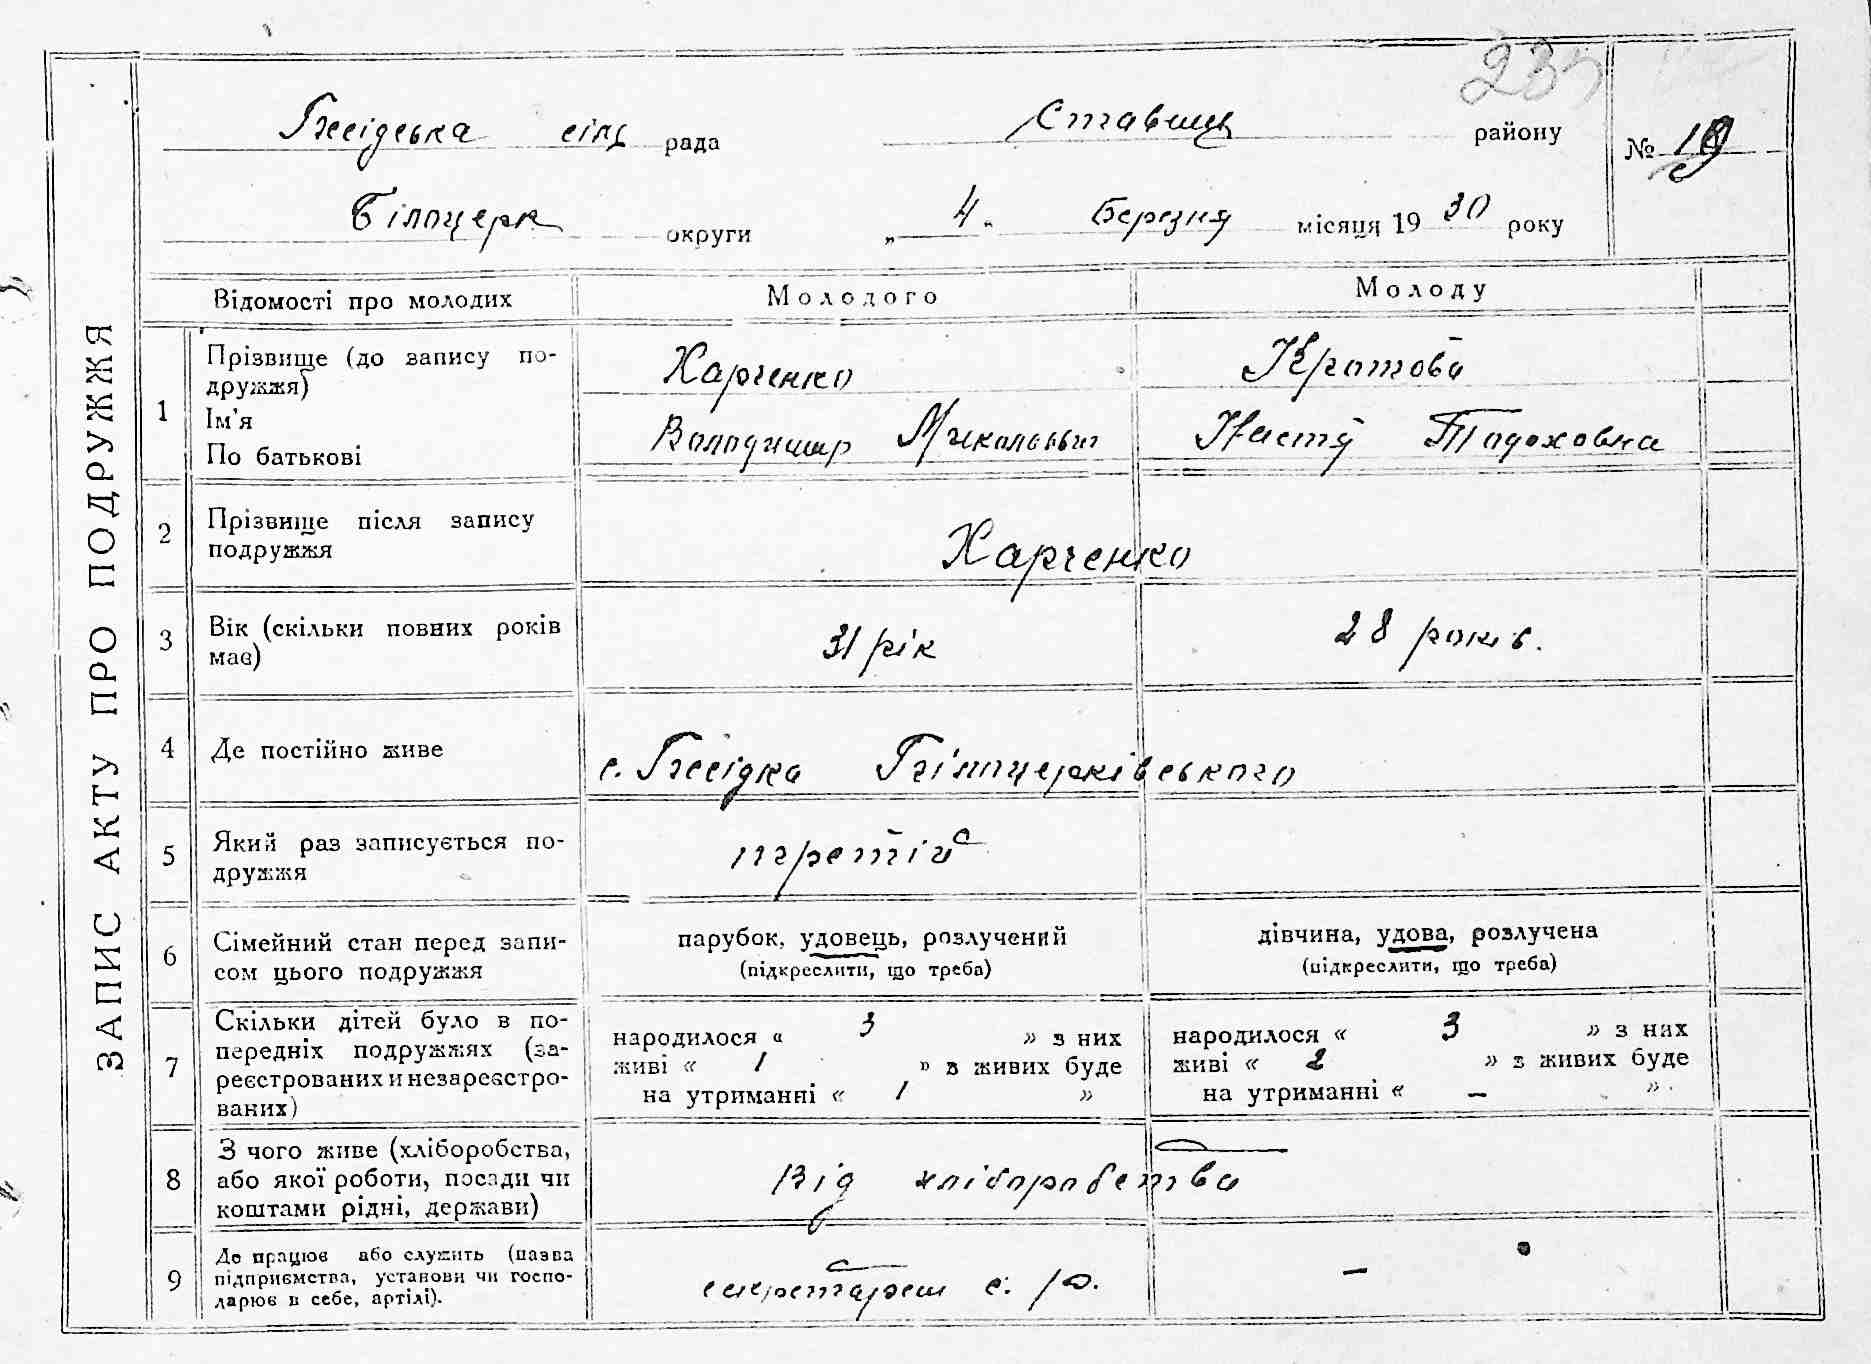 ЗАПИС АКТУ ПРО ПОДРУЖЖЯ
Бесідська сіль рада Ставищ району
№ 19
Білоцерк округи „ 4 " Березня місяця 19 30 року
Відомості про молодих Молодого Молоду
1 Прізвище (до запису по-
дружжя)
Ім'я
По батькові
Харченко
Володимир Миколович
Кротова
Настя Тодоховна
2 Прізвище після запису
подружжя
Харченко
3 Вік (скільки повних років
має)
31 рік
28 років.
4 Де постійно живе
с. Бесідка Білоцерківського
5 Який раз записується по-
дружжя
третій
6 Сімейний стан перед запи-
сом цього подружжя
парубок, удовець, розлучений
(підкреслити, що треба)
дівчина, удова, розлучена
(підкреслити, що треба)
7 Скільки дітей було в по-
передніх подружжях (за-
реєстрованих и незареєстро-
ваних)
народилося « 3 » з них
живі « 1 » з живих буде
на утриманні « 1 »
народилося « 3 » з них
живі « 2 » з живих буде
на утриманні « – »
8 З чого живе (хліборобства,
або якої роботи, посади чи
коштами рідні, держави)
Від хліборобства
9 Де працює або служить (назва
підприємства, установи чи госпо-
дарює в себе, артілі).
секретарем с. р.
–